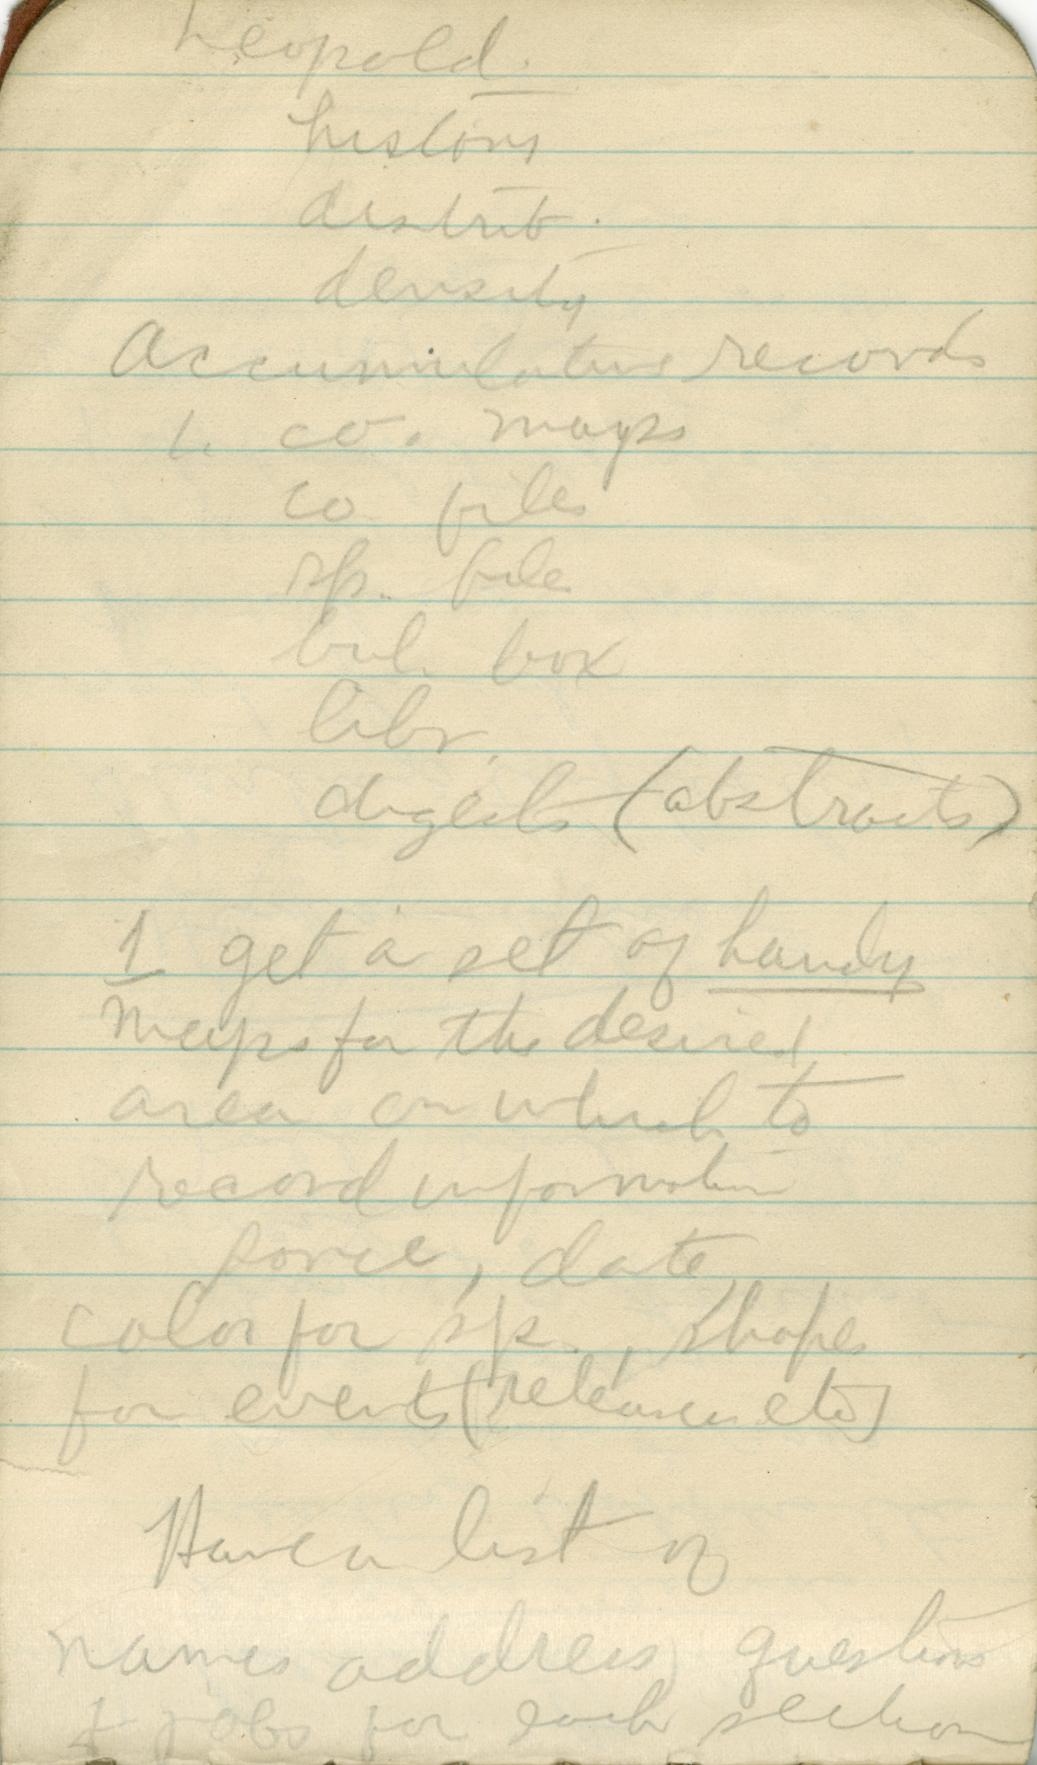 Leopold.
history
distrib.
density
Accumulative records
1. co. maps
co files
sp. file
bul. box
libr.
digests (abstracts)
1 get a set of handy
maps for the desired
area on which to
record information
source, date,
color for sp., shapes
for events (releases etc)
Have a list of
names address, questions
& jobs for each section